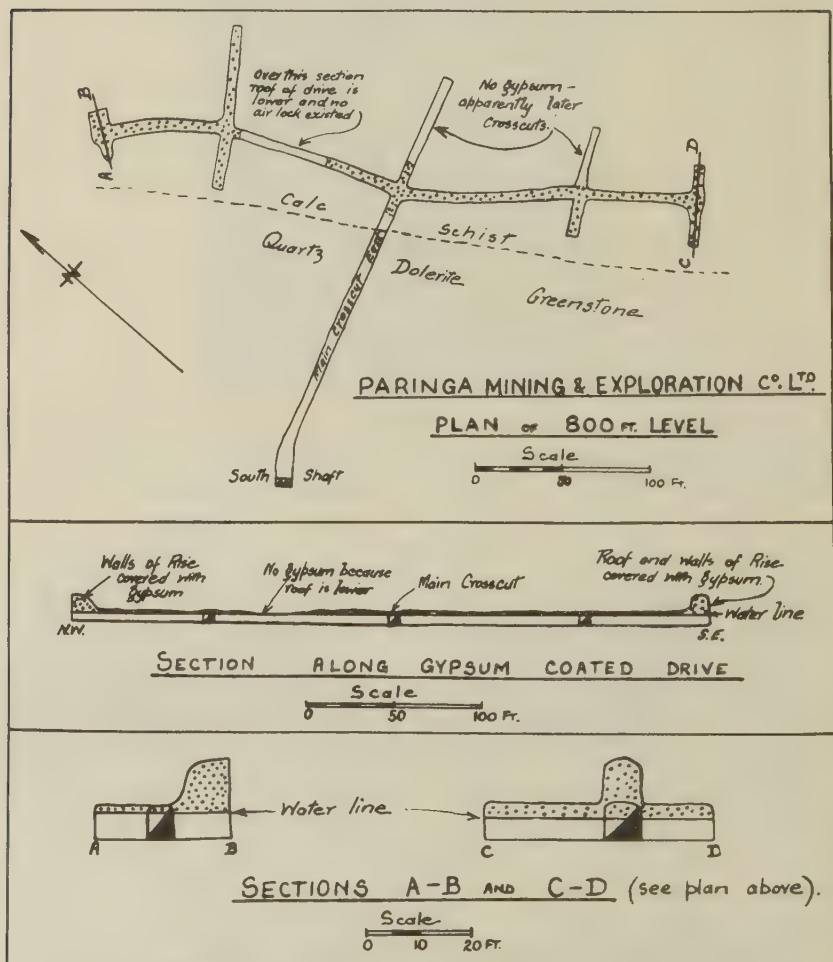 Over this section
roof of drive is
lower and no
air lock existed
No gypsum –
apparently later
Crosscuts.
B
A
D
C
Calc Schist
Quartz Dolerite Greenstone
Main Crosscut East
N
South Shaft
PARINGA MINING & EXPLORATION Co. LTD.
PLAN OF 800 FT. LEVEL
Scale
0 50 100 FT.
Walls of Rise
covered with
gypsum
No Gypsum because
roof is lower
Main Crosscut
Roof and walls of Rise
covered with gypsum.
Water line
N.W.
S.E.
SECTION ALONG GYPSUM COATED DRIVE
Scale
0 50 100 FT.
Water line
A B C D
SECTIONS A-B AND C-D (see plan above).
Scale
0 10 20 FT.